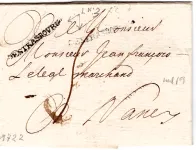 A Monsieur
DE STRASBOURG
Monsieur Jean françois
Lelegé marchand
A Nancy
1722